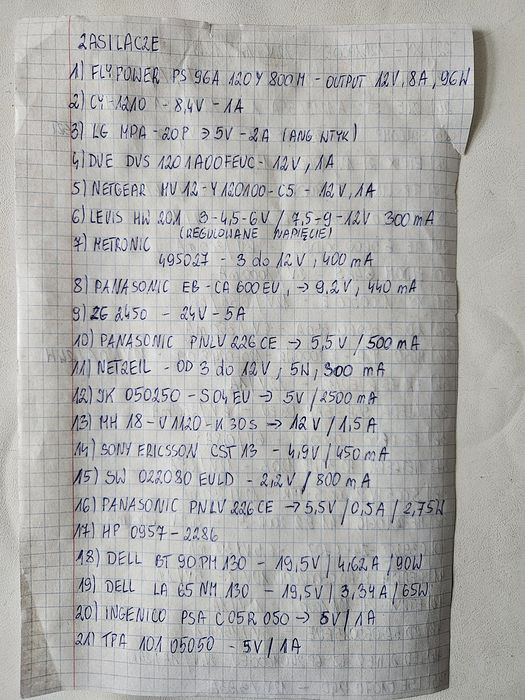 ZASILACZE
1) FLYPOWER PS 96A 120Y 800M - OUTPUT 12V, 8A, 96W
2) CY-1210 - 8,4V - 1A
3) LG MPA - 20P → 5V - 2A (ANG WTYK)
4) DVE DVS 1201A00FEUC - 12V, 1A
5) NETGEAR MV 12-Y120100-C5 - 12V, 1A
6) LEVIS HW 201 3-4,5-6V / 7,5-9-12V 300 mA
(REGULOWANE NAPIĘCIE)
7) METRONIC
495027 - 3 do 12V, 400 mA
8) PANASONIC EB-CA600EU, → 9,2V, 440 mA
9) ZG 2450 - 24V - 5A
10) PANASONIC PNLV 226 CE → 5,5V / 500 mA
11) NETZEIL - OD 3 do 12V, 5W, 300 mA
12) JK 050250 - S04EU → 5V / 2500 mA
13) MH 18-V1120-K30S → 12V / 1,5A
14) SONY ERICSSON CST 13 - 4,9V / 450 mA
15) SW 022080 EULD - 2,2V / 800 mA
16) PANASONIC PNLV 226 CE → 5,5V / 0,5A / 2,75W
17) HP 0957-2286
18) DELL BT 90 PM 130 - 19,5V / 4,62A / 90W
19) DELL LA 65 NM 130 - 19,5V / 3,34A / 65W
20) INGENICO PSA C05R 050 → 5V / 1A
21) TPA 101 05050 - 5V / 1A